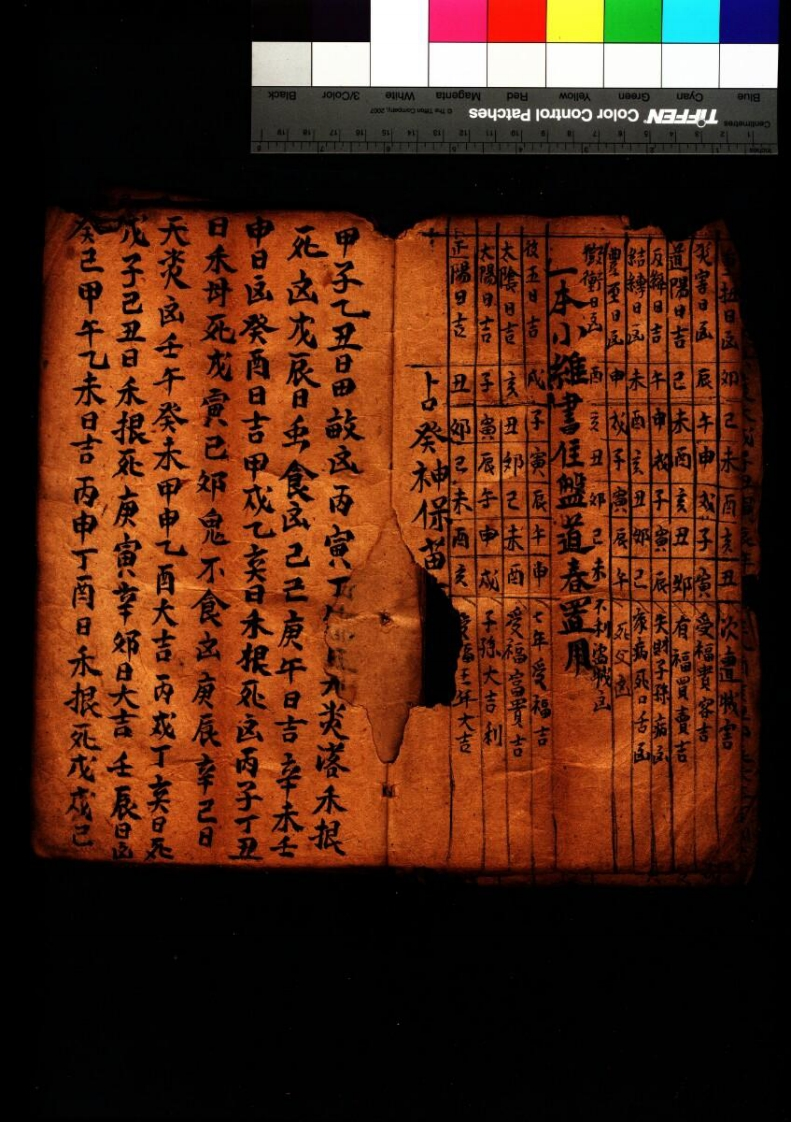 Blue Cyan Green Yellow Red Magenta White 3/Color Black
TIFFEN Color Control Patches © The Tiffen Company, 2007
Centimetres
Inches
日凶 卯 巳 未 酉 亥 丑 次遭賊害
災害日凶 辰 午 申 戌 子 寅 受福貴客吉
道陽日吉 巳 未 酉 亥 丑 卯 有福買賣吉
日吉 午 申 戌 子 寅 辰 失財子孫病凶
結縛日凶 未 酉 亥 丑 卯 巳 疾病死口舌凶
日凶 申 戌 子 寅 辰 午 死父凶
日凶 酉 亥 丑 卯 巳 未 不利盜賊凶
一本小 書住盤道春置用
日吉 戌 子 寅 辰 午 申 七年受福吉
太陰日吉 亥 丑 卯 巳 未 酉 受福富貴吉
太陽日吉 子 寅 辰 午 申 戌 子孫大吉利
正陽日吉 丑 卯 巳 未 酉 亥 年大吉
占癸神保苗
甲子乙丑日田 凶丙寅丁 災落禾根
死凶戊辰日虫食凶己巳庚午日吉辛未壬
申日凶癸酉日吉甲戌乙亥日禾根死凶丙子丁丑
日禾 死戊寅己卯鬼不食凶庚辰辛巳日
天炎凶壬午癸未甲申乙酉大吉丙戌丁亥日死
戊子己丑日禾根死庚寅辛卯日大吉壬辰日凶
癸巳甲午乙未日吉丙申丁酉日禾根死戊戌己